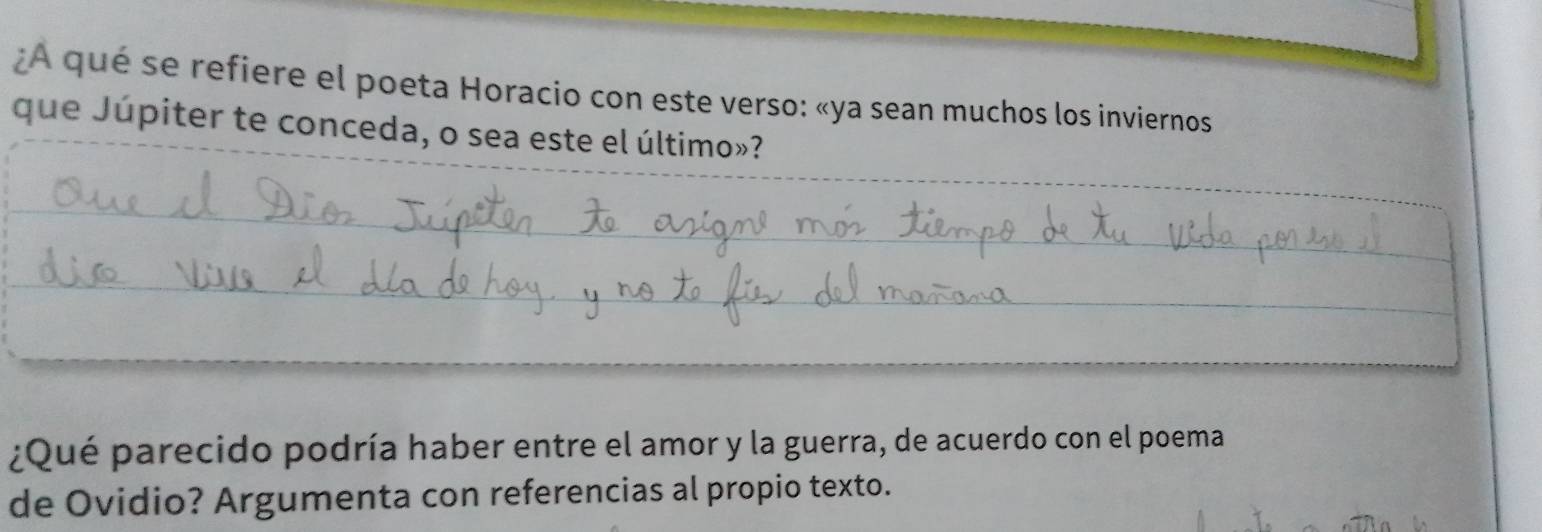 ¿A qué se refiere el poeta Horacio con este verso: «ya sean muchos los inviernos
que Júpiter te conceda, o sea este el último»?
Que el Dios Júpiter te asigne más tiempo de tu vida por eso el
dice vive el día de hoy. y no te fies del mañana
¿Qué parecido podría haber entre el amor y la guerra, de acuerdo con el poema
de Ovidio? Argumenta con referencias al propio texto.